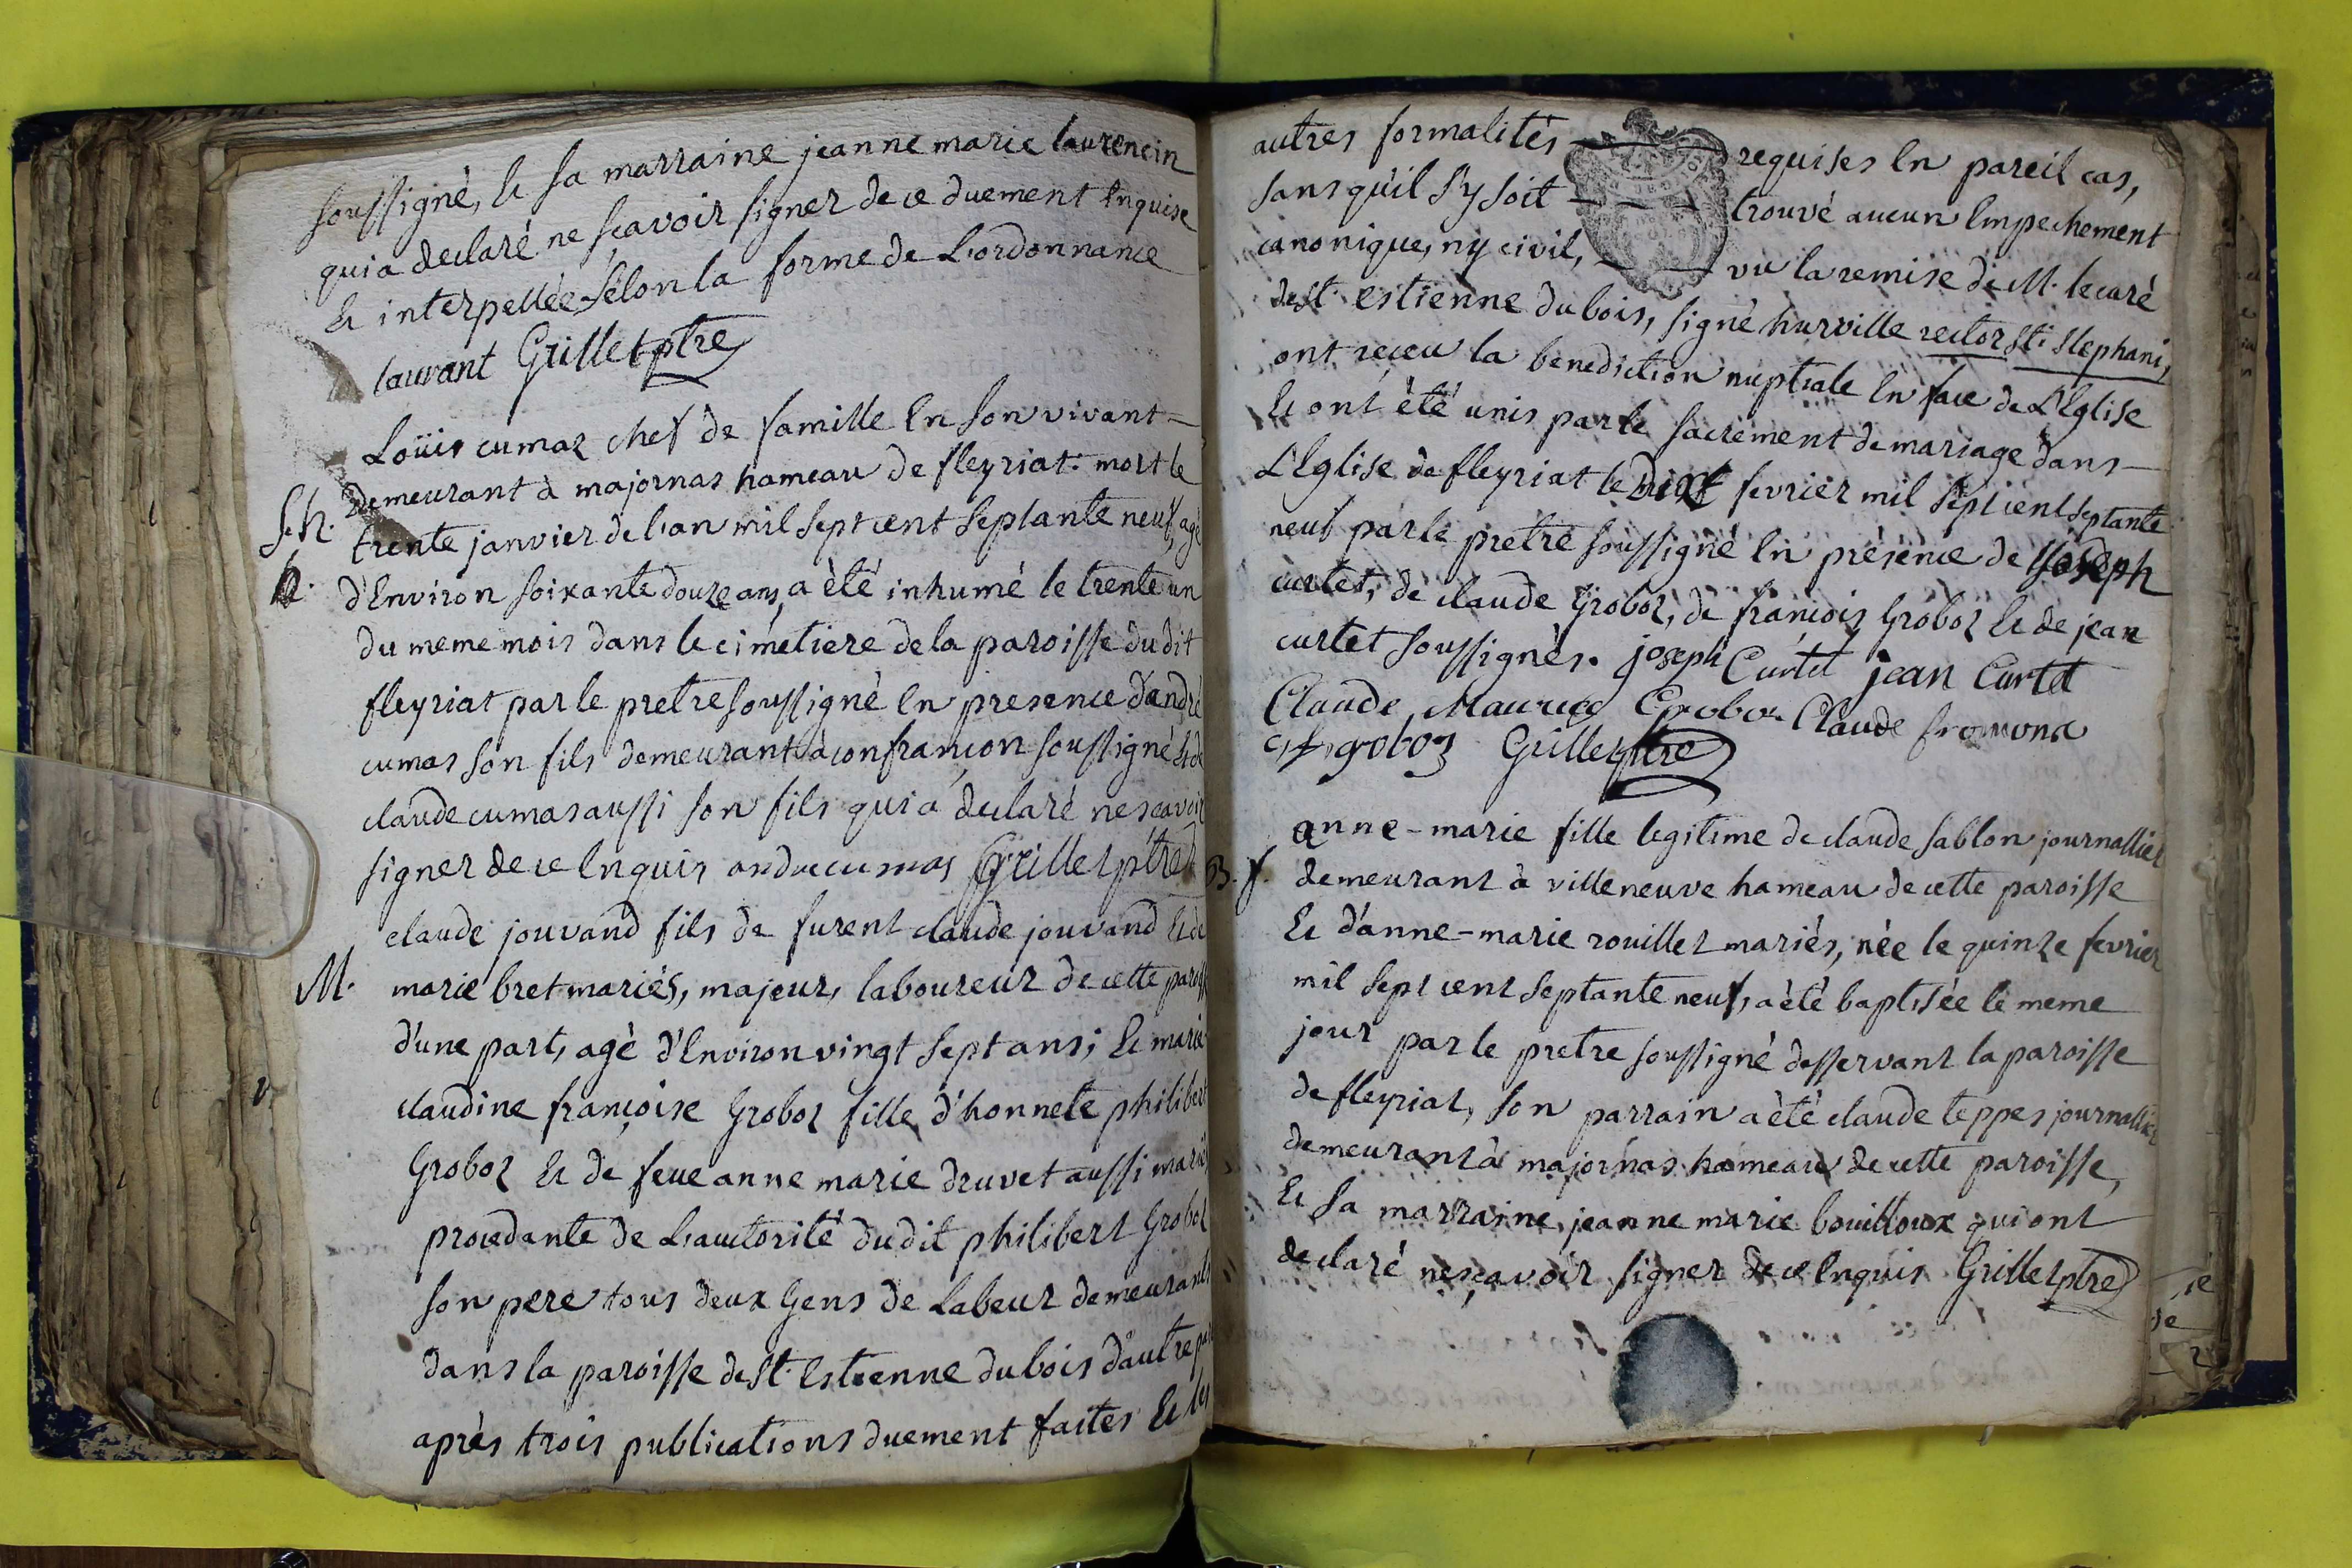 soussigné, et sa marraine jeanne marie laurencin
qui a declaré ne sçavoir signer de ce duement enquise
et interpellée selon la forme de l'ordonnance
laurant Grillet ptre
Loüis cumaz chef de famille en son vivant
demeurant à majornas hameau de fleyriat. mort le
S.h. trente janvier de l'an mil sept cent septante neuf, agé
h. d'environ soixante douze ans, a èté inhumé le trente un
du meme mois dans le cimetiere de la paroisse du dit
fleyriat par le pretre soussigné en presence d'andré
cumas son fils demeurant à confrançon soussigné et de
claude cumas aussi son fils qui a declaré ne scavoir
signer de ce enquis andre cumas Grillet ptre
claude jouvand fils de furent claude jouvand et de
M. marie bret mariés, majeur, laboureur de cette paroisse
d'une part, agè d'environ vingt sept ans; et marie
claudine françoise Groboz fille d'honnete philibert
Groboz et de feue anne marie druvet aussi mariés
procedante de l'auctorité dudit philibert Groboz
son pere tous deux Gens de Labeur demeurants
dans la paroisse de St. Estienne du bois d'autre part
après trois publications duement faites et les
autres formalités requises en pareil cas,
sans qu'il s'y soit trouvé aucun empechement
canonique, ny civil, vu la remise de M. le curé
de St. estienne du bois, signé hurville rector sti stephani,
ont receu la benediction nuptiale en face de L'Eglise
et ont été unis par le sacrement de mariage dans
L'Eglise de fleyriat le fevrier mil sept cent septante
neuf par le pretre soussigné en présence de joseph
curtet, de claude Groboz, de francois Groboz et de jean
curtet soussignés. joseph Curtet jean Curtet
Claude Maurice Groboz Claude
groboz Grillet ptre
anne-marie fille legitime de claude sablon journallier
B. f. demeurant à villeneuve hameau de cette paroisse
et d'anne-marie rouillet mariés, née le quinze fevrier
mil sept cent septante neuf, a èté baptisée le meme
jour par le pretre soussigné desservant la paroisse
de fleyriat, son parrain a èté claude teppes journallier
demeurant à majornas hameau de cette paroisse,
et sa marraine jeanne marie bouilloux qui ont
declaré ne sçavoir signer de ce enquis Grillet ptre